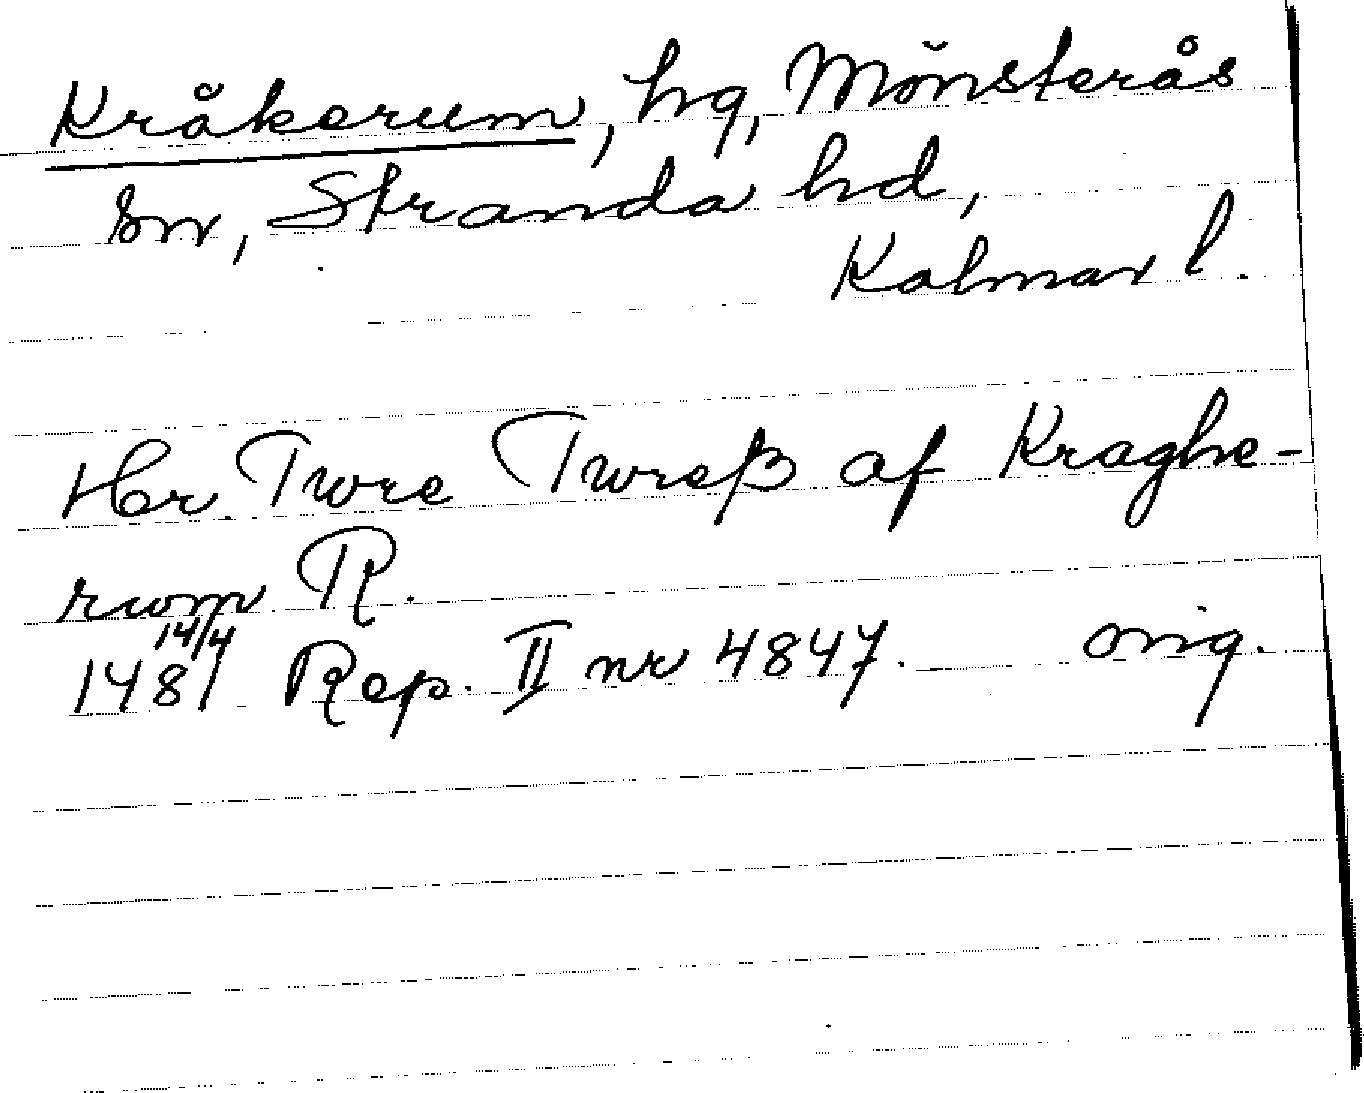 Kråkerum, hg, Mönsterås
sn, Stranda hd,
Kalmar l.
Her Twre Twreß af Kraghe-
rwm R.
14/4
1481 Rep. II nr 4847. orig.